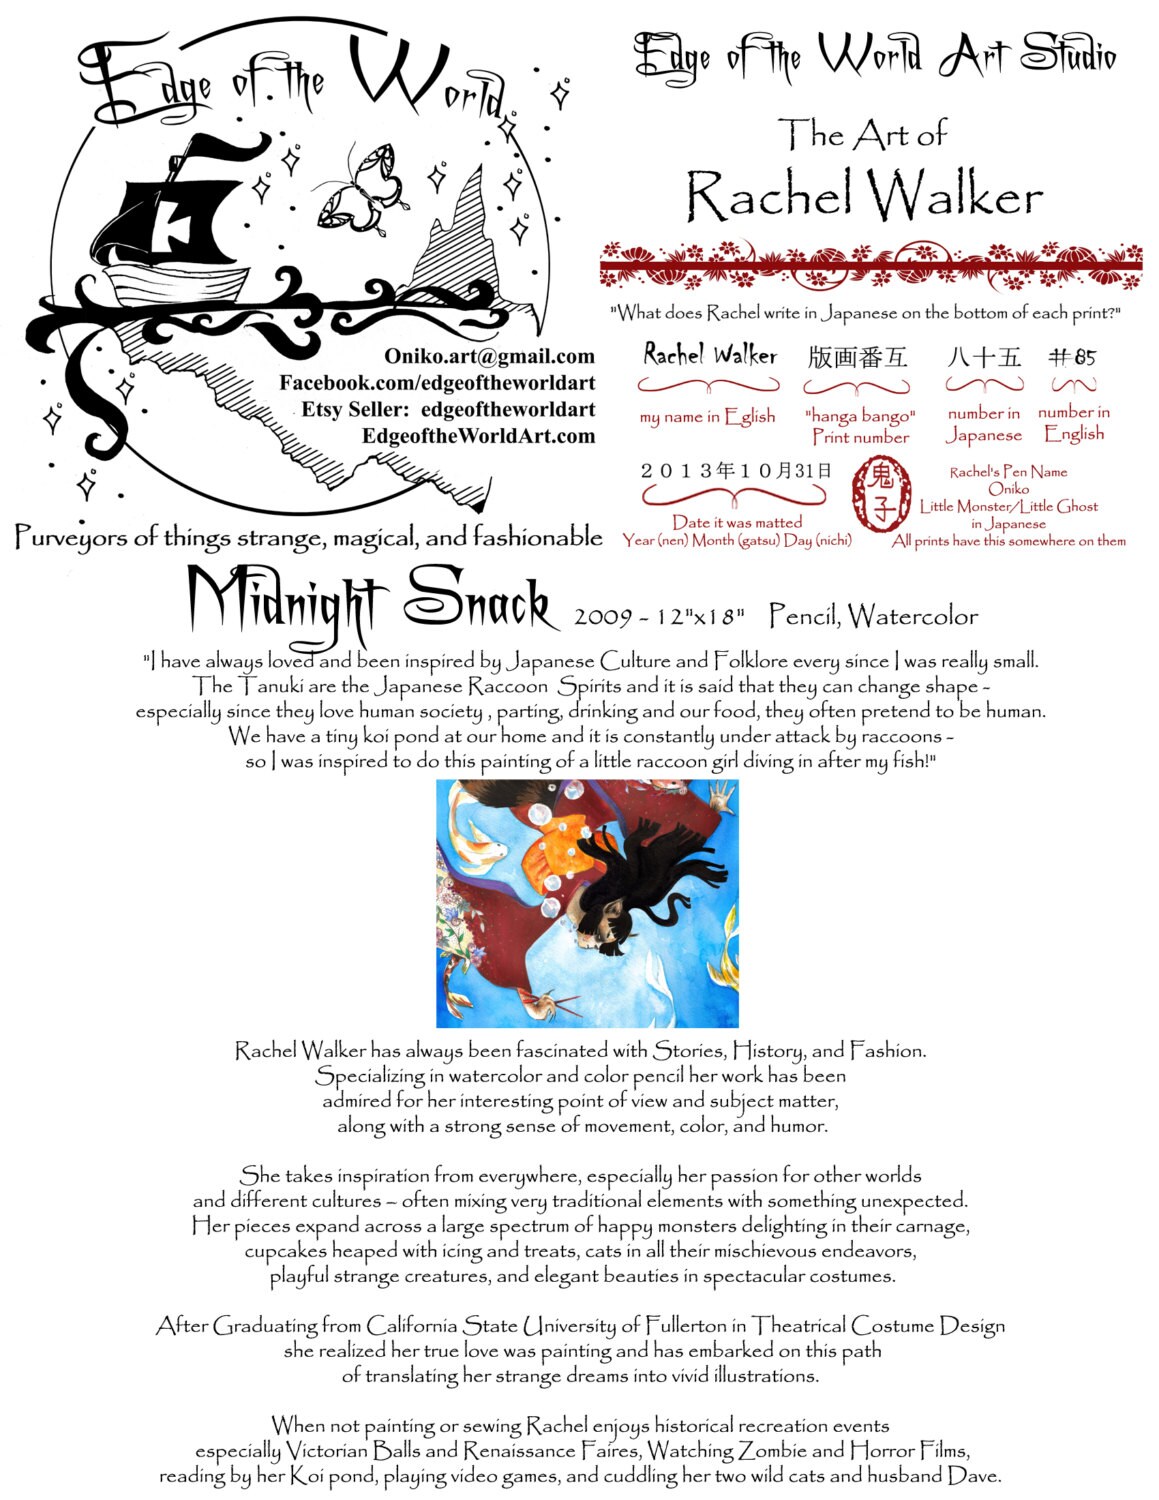 Edge of the World
Oniko.art@gmail.com
Facebook.com/edgeoftheworldart
Etsy Seller: edgeoftheworldart
EdgeoftheWorldArt.com
Purveyors of things strange, magical, and fashionable
Edge of the World Art Studio
The Art of
Rachel Walker
"What does Rachel write in Japanese on the bottom of each print?"
Rachel Walker 版画番互 八十五 #85
my name in Eglish "hanga bango" Print number number in Japanese number in English
2013年10月31日
Date it was matted
Year (nen) Month (gatsu) Day (nichi)
鬼
子
Rachel's Pen Name
Oniko
Little Monster/Little Ghost
in Japanese
All prints have this somewhere on them
Midnight Snack 2009 - 12"x18" Pencil, Watercolor
"I have always loved and been inspired by Japanese Culture and Folklore every since I was really small.
The Tanuki are the Japanese Raccoon Spirits and it is said that they can change shape -
especially since they love human society , parting, drinking and our food, they often pretend to be human.
We have a tiny koi pond at our home and it is constantly under attack by raccoons -
so I was inspired to do this painting of a little raccoon girl diving in after my fish!"
Rachel Walker has always been fascinated with Stories, History, and Fashion.
Specializing in watercolor and color pencil her work has been
admired for her interesting point of view and subject matter,
along with a strong sense of movement, color, and humor.
She takes inspiration from everywhere, especially her passion for other worlds
and different cultures – often mixing very traditional elements with something unexpected.
Her pieces expand across a large spectrum of happy monsters delighting in their carnage,
cupcakes heaped with icing and treats, cats in all their mischievous endeavors,
playful strange creatures, and elegant beauties in spectacular costumes.
After Graduating from California State University of Fullerton in Theatrical Costume Design
she realized her true love was painting and has embarked on this path
of translating her strange dreams into vivid illustrations.
When not painting or sewing Rachel enjoys historical recreation events
especially Victorian Balls and Renaissance Faires, Watching Zombie and Horror Films,
reading by her Koi pond, playing video games, and cuddling her two wild cats and husband Dave.